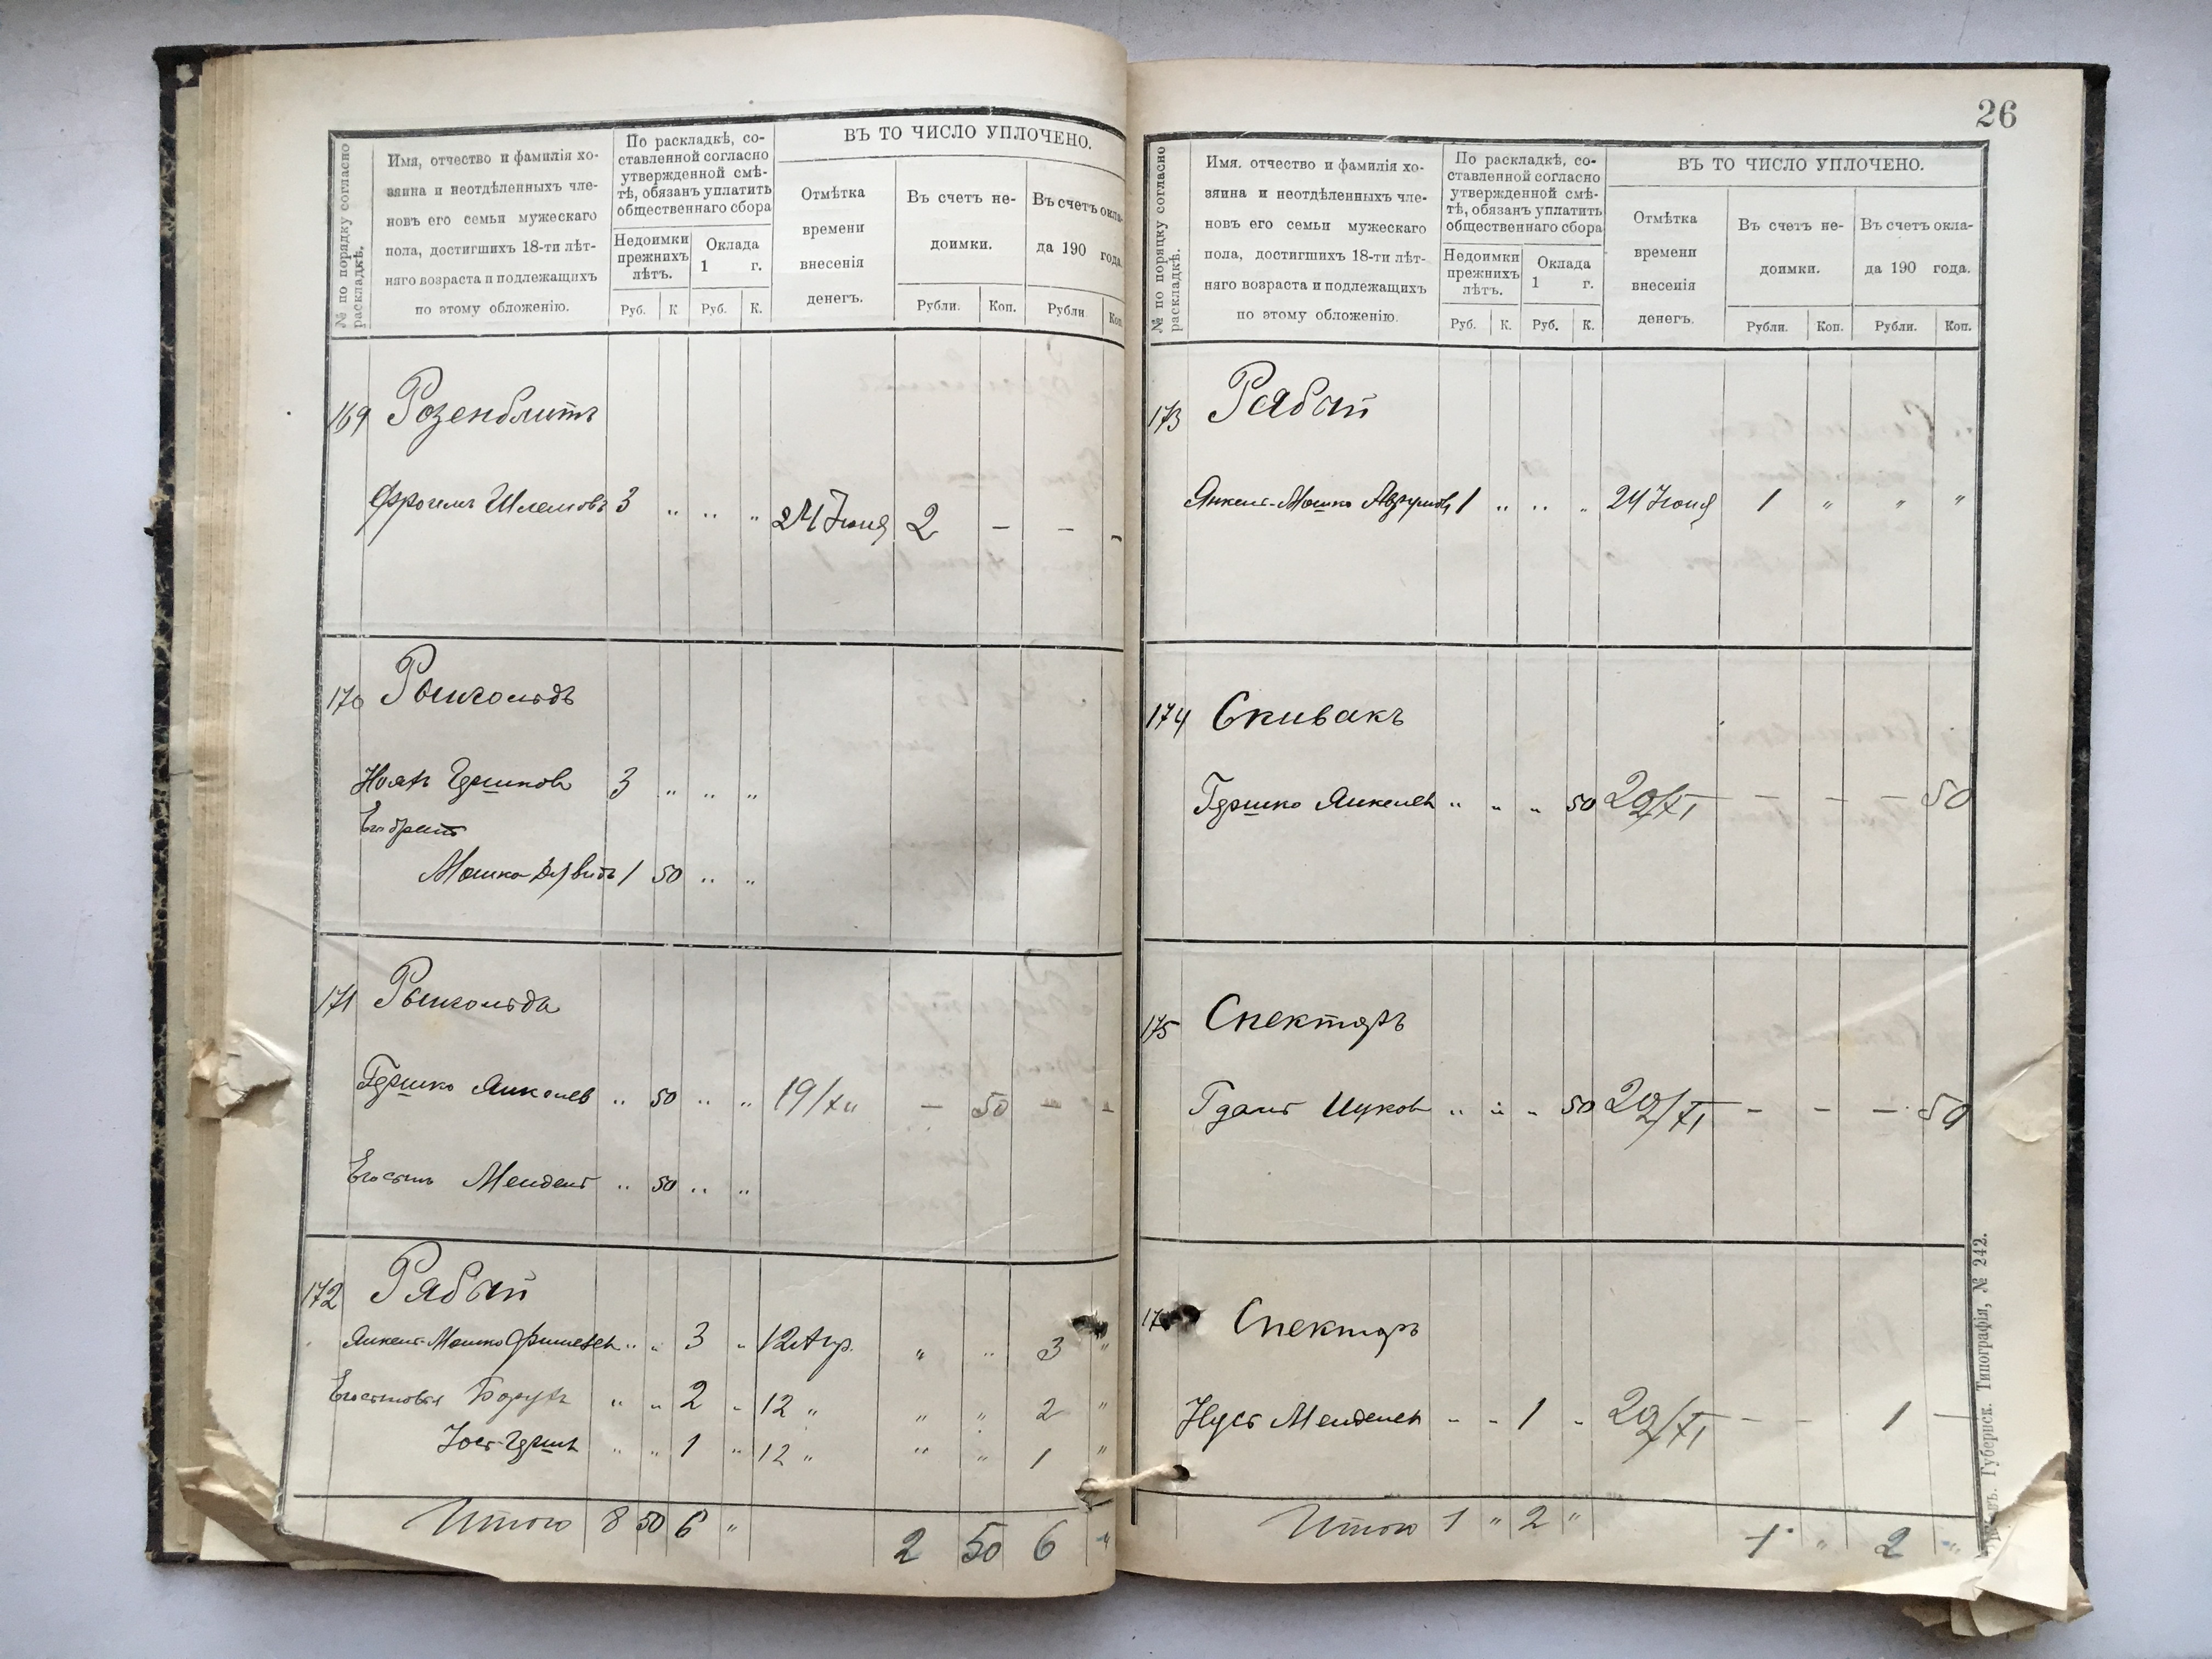 № по порядку согласно раскладкѣ.
Имя, отчество и фамилія хо-
зяина и неотдѣленныхъ чле-
новъ его семьи мужескаго
пола, достигшихъ 18-ти лѣт-
няго возраста и подлежащихъ
по этому обложенію.
По раскладкѣ, со-
ставленной согласно
утвержденной смѣ-
тѣ, обязанъ уплатить
общественнаго сбора
Недоимки
прежнихъ
лѣтъ.
Оклада
1 г.
Руб. К Руб. К.
ВЪ ТО ЧИСЛО УПЛОЧЕНО.
Отмѣтка
времени
внесенія
денегъ.
Въ счетъ не-
доимки.
Въ счетъ окла-
да 190 года.
Рубли. Коп. Рубли Коп
169 Розенблитъ
Фроимъ Шлемовъ 3 " " " 24 Іюня 2 – – –
170 Рынгольдъ
Ноахъ Гершковъ 3 " " "
Его братъ
Мошко-Давидъ 1 50 " "
171 Рынгольдъ
Гершко Янкелев " 50 " " 19/XII – 50 – –
Его сынъ Мендель " 50 " "
172 Рябый
Янкель-Мошко Фишелев " " 3 " 12 Апр. " " 3 "
Его сыновья Борухъ " " 2 " 12 " " " 2 "
Іось-Гершъ " " 1 " 12 " " " 1 "
Итого 8 50 6 " 2 50 6 "
26
№ по порядку согласно раскладкѣ.
Имя. отчество и фамилія хо-
зяина и неотдѣленныхъ чле-
новъ его семьи мужескаго
пола, достигшихъ 18-ти лѣт-
няго возраста и подлежащихъ
по этому обложенію.
По раскладкѣ, со-
ставленной согласно
утвержденной смѣ-
тѣ, обязанъ уплатить
общественнаго сбора
Недоимки
прежнихъ
лѣтъ.
Оклада
1 г.
Руб. К. Руб. К.
ВЪ ТО ЧИСЛО УПЛОЧЕНО.
Отмѣтка
времени
внесенія
денегъ.
Въ счетъ не-
доимки.
Въ счетъ окла-
да 190 года.
Рубли. Коп. Рубли. Коп.
173 Рябый
Янкель-Мошко 1 " " " 24 Іюня 1 " " "
174 Спивакъ
Гершко Янкелев " " " 50 20/XI – – – 50
175 Спекторъ
Ицков " " " 50 20/XI – – – 50
17 Спекторъ
Нусь Менделев – – 1 " 20/XI – – 1 –
Итого 1 " 2 " 1 " 2 "
Губернск. Типографія, № 242.